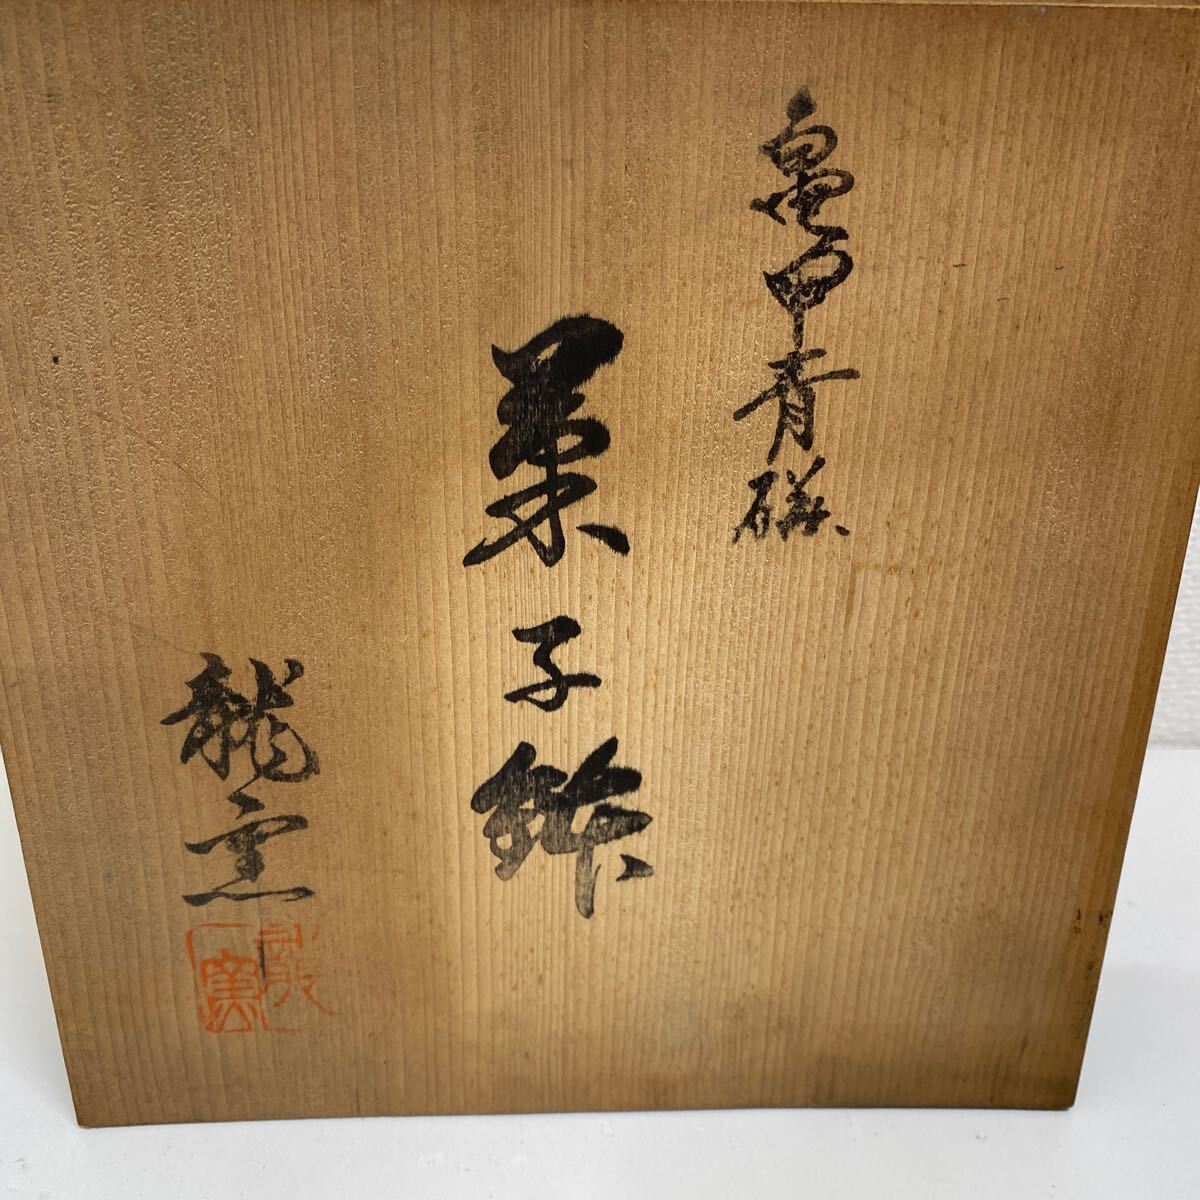 亀甲青磁
菓子鉢
龍窯